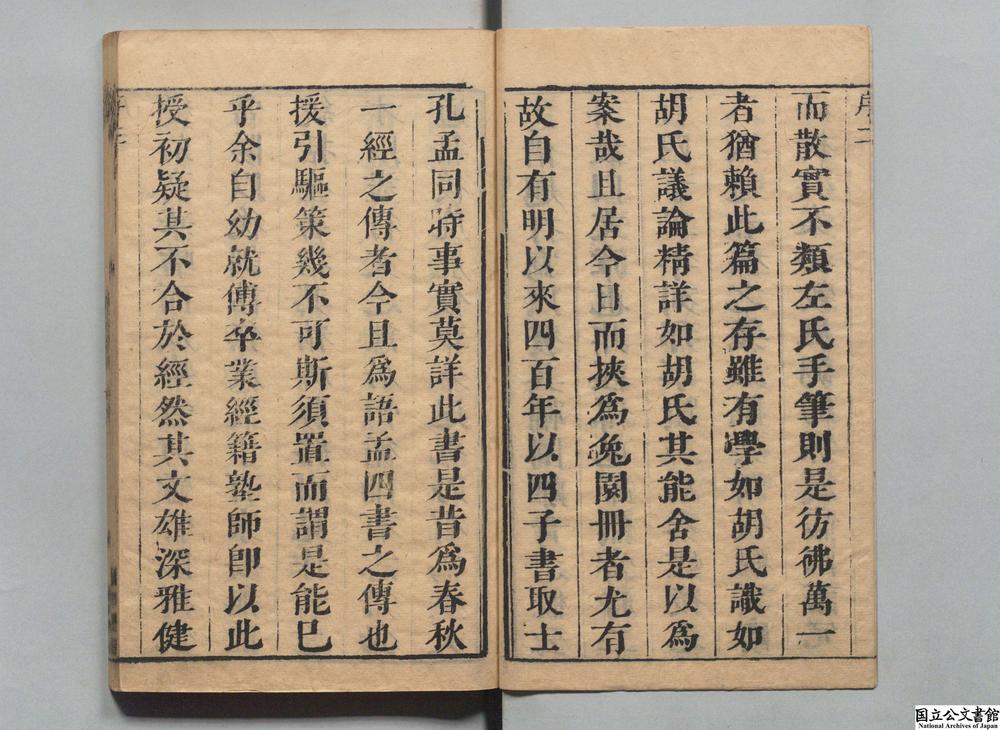 序二
而散實不類左氏手筆則是彷彿萬一
者猶賴此篇之存雖有學如胡氏識如
胡氏議論精詳如胡氏其能舍是以爲
案哉且居今日而挾爲兔園冊者尤有
故自有明以來四百年以四子書取士
孔孟同時事實莫詳此書是昔爲春秋
一經之傳者今且爲語孟四書之傳也
援引驅策幾不可斯須置而謂是能已
乎余自幼就傅卒業經籍塾師卽以此
授初疑其不合於經然其文雄深雅健
国立公文書館
National Archives of Japan